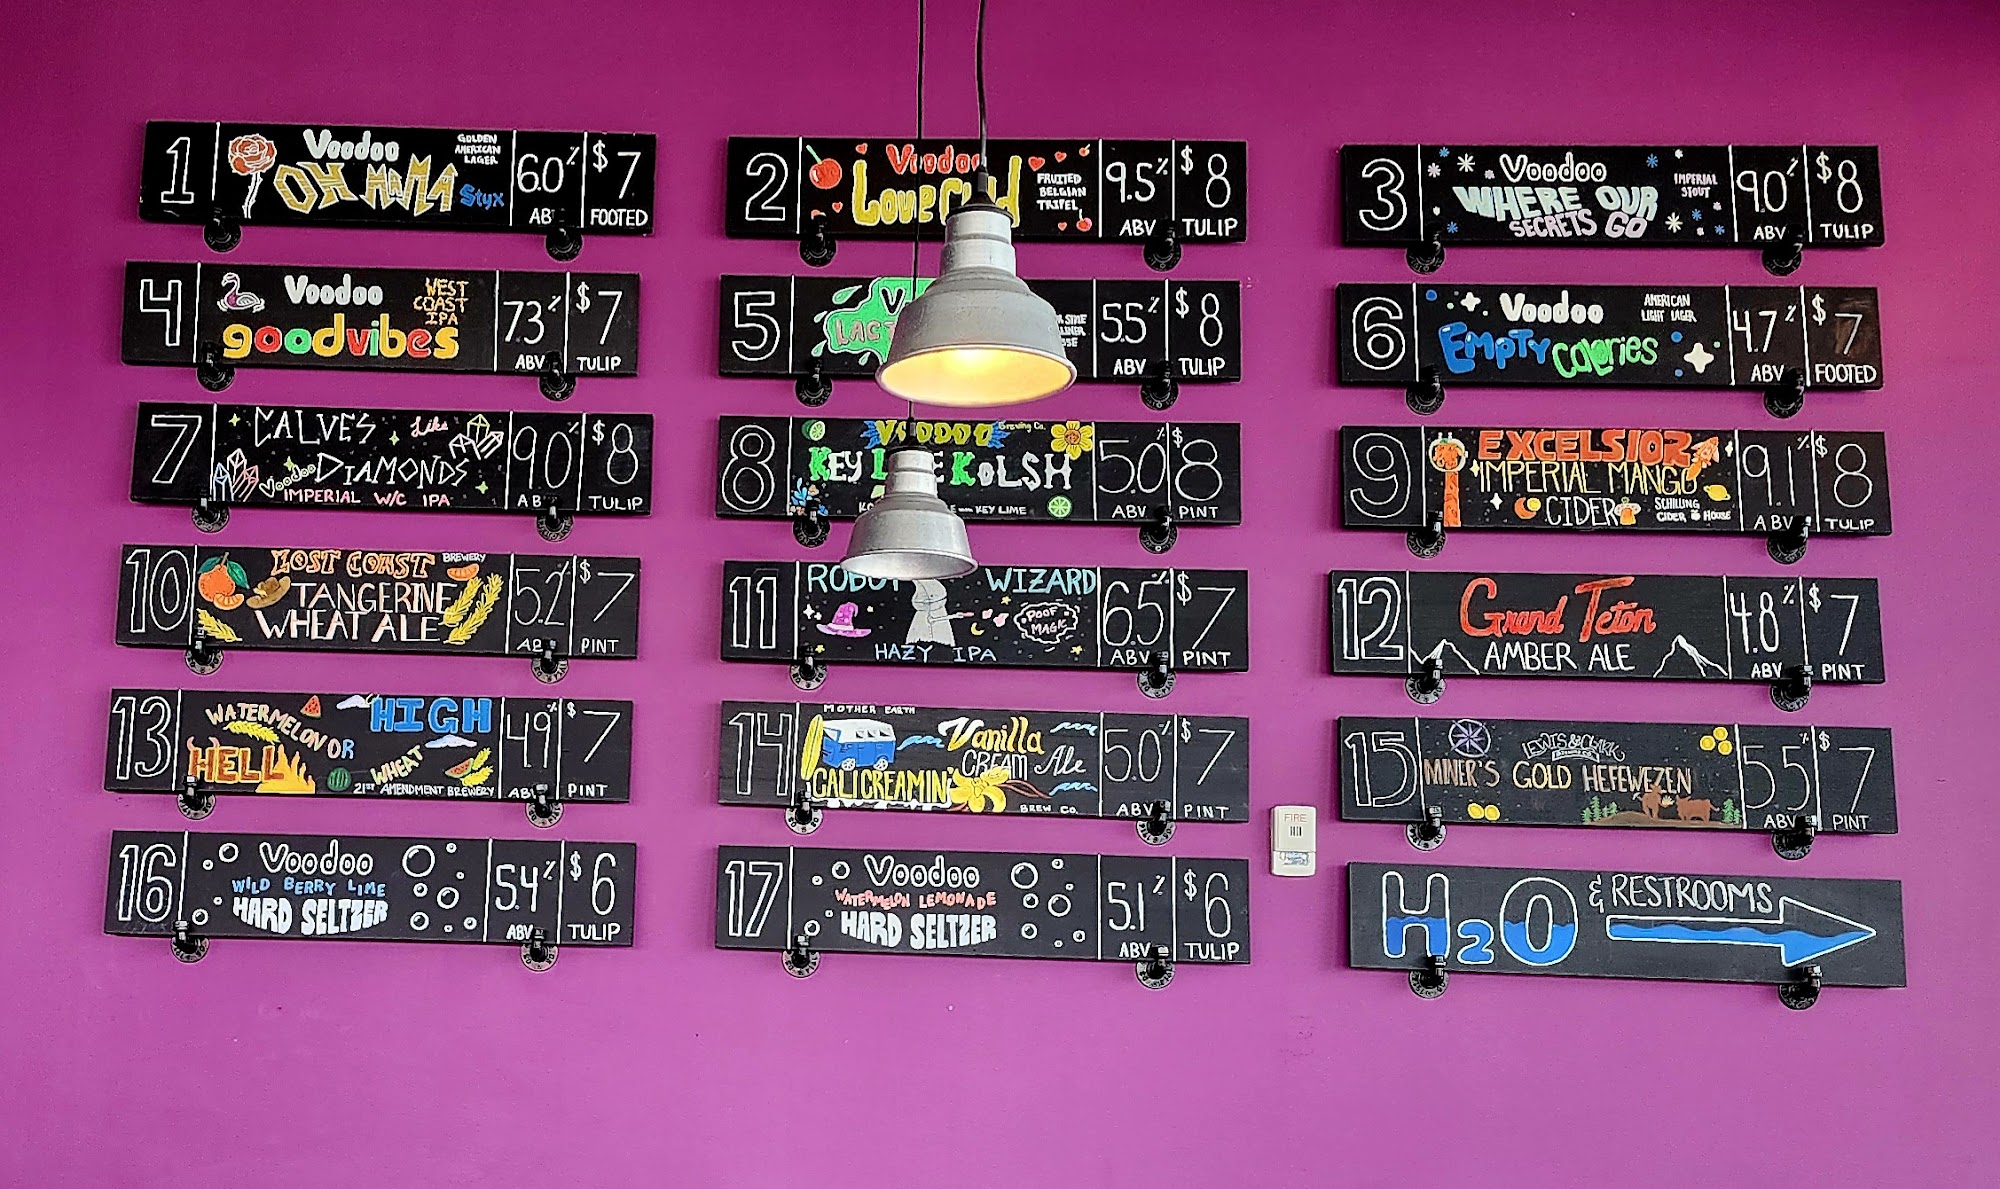 1
Voodoo
OH MAMA
Styx
GOLDEN
AMERICAN
LAGER
6.0%
ABV
$7
FOOTED
2
Voodoo
Love
FRUITED
BELGIAN
TRIPEL
9.5%
ABV
$8
TULIP
3
Voodoo
WHERE OUR
SECRETS GO
IMPERIAL
STOUT
9.0%
ABV
$8
TULIP
4
Voodoo
goodvibes
WEST
COAST
IPA
7.3%
ABV
$7
TULIP
5
5.5%
ABV
$8
TULIP
6
Voodoo
Empty Calories
AMERICAN
LIGHT LAGER
4.7%
ABV
$7
FOOTED
7
CALVES Like
Voodoo DIAMONDS
IMPERIAL W/C IPA
9.0%
ABV
$8
TULIP
8
VOODOO Brewing Co.
KEY LIME KOLSH
KEY LIME
5.0%
ABV
$8
PINT
9
EXCELSIOR
IMPERIAL MANGO
CIDER
SCHILLING
CIDER HOUSE
9.1%
ABV
$8
TULIP
10
LOST COAST BREWERY
TANGERINE
WHEAT ALE
5.2%
ABV
$7
PINT
11
ROBOT WIZARD
POOF
MAGIC
HAZY IPA
6.5%
ABV
$7
PINT
12
Grand Teton
AMBER ALE
4.8%
ABV
$7
PINT
13
WATERMELON OR
HELL
HIGH
WHEAT
21ST AMENDMENT BREWERY
4.9%
ABV
$7
PINT
14
MOTHER EARTH
CALI CREAMIN'
Vanilla
CREAM Ale
BREW CO.
5.0%
ABV
$7
PINT
15
LEWIS & CLARK
BREWING CO.
MINER'S GOLD HEFEWEZEN
5.5%
ABV
$7
PINT
FIRE
16
Voodoo
WILD BERRY LIME
HARD SELTZER
5.4%
ABV
$6
TULIP
17
Voodoo
WATERMELON LEMONADE
HARD SELTZER
5.1%
ABV
$6
TULIP
H2O & RESTROOMS